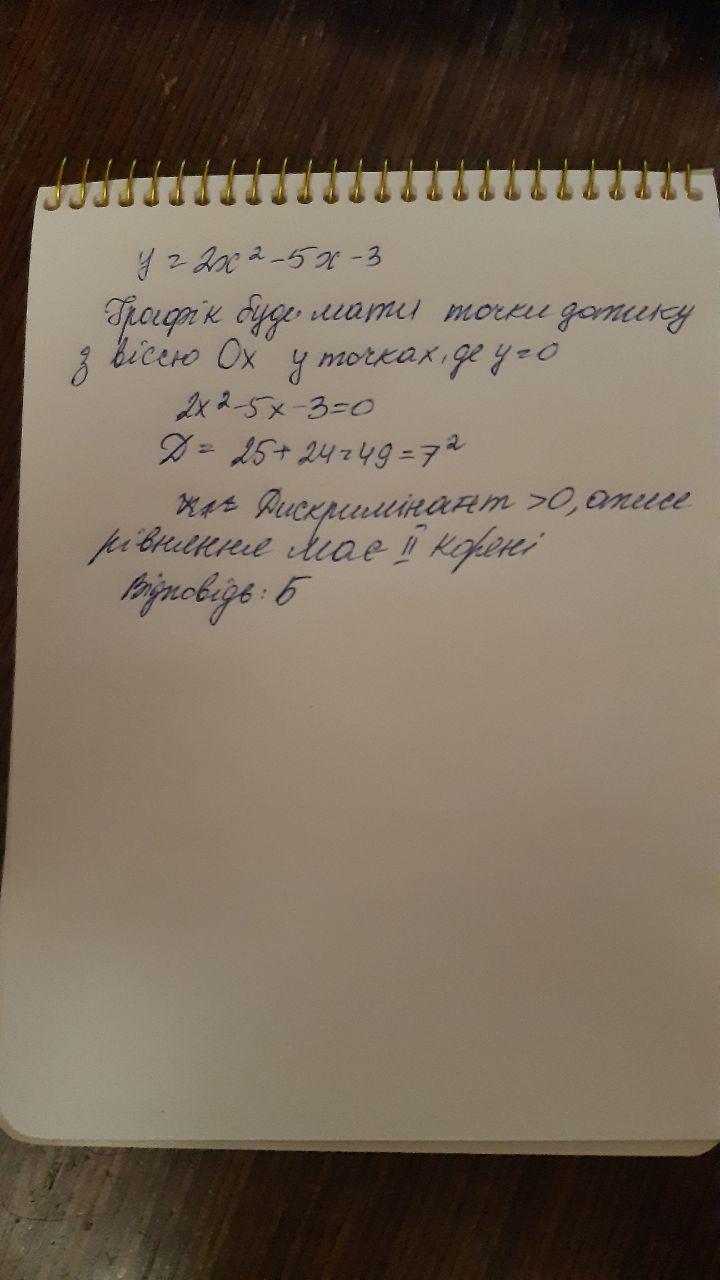 y = 2x² - 5x - 3
Графік буде мати точки дотику
з віссю Ox у точках, де y = 0
2x² - 5x - 3 = 0
Д = 25 + 24 = 49 = 7²
Дискримінант > 0, отже
рівняння має II корені
Відповідь: Б